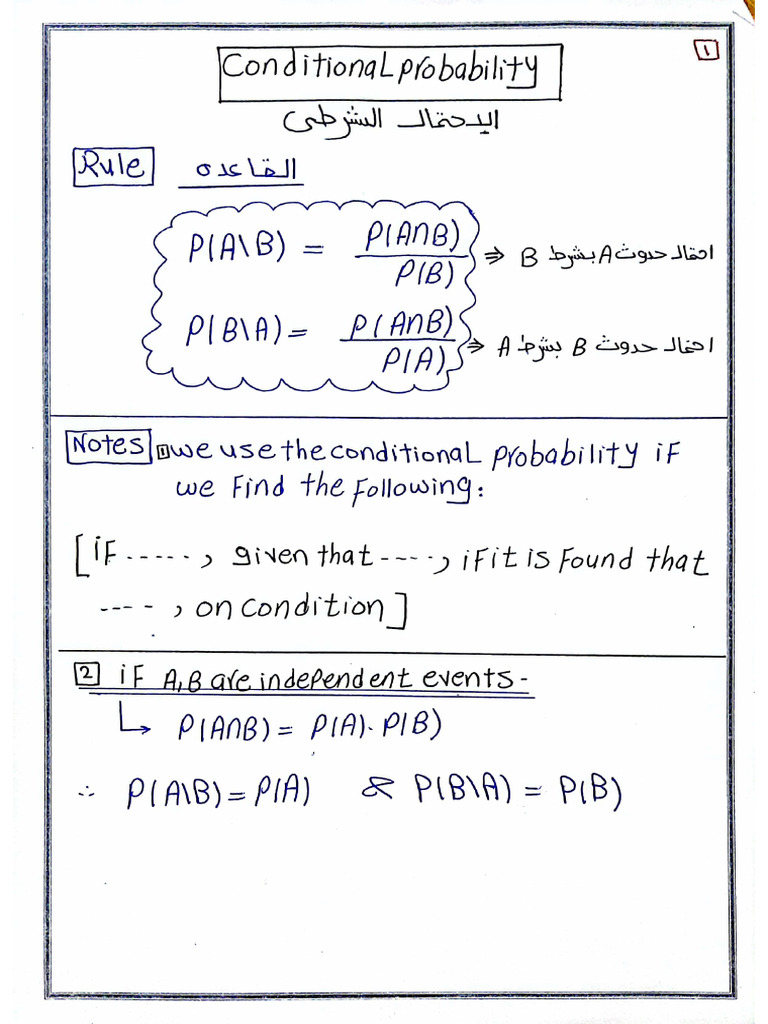 1
Conditional probability
الاحتمال الشرطى
Rule القاعده
P(A\B) = P(A∩B) / P(B) ⇒ احتمال حدوث A بشرط B
P(B\A) = P(A∩B) / P(A) ⇒ احتمال حدوث B بشرط A
Notes 1 we use the conditional probability if
we Find the Following:
[if -----, given that ----, if it is Found that
----, on condition]
2 if A,B are independent events-
↳ P(A∩B) = P(A). P(B)
∴ P(A\B) = P(A) & P(B\A) = P(B)